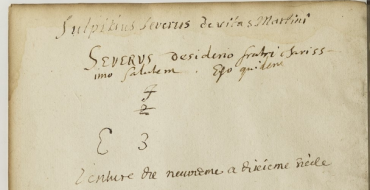 Sulpitius Severus de vita S Martini
SEVERUS desiderio fratri chariss-
imo salutem. Ego quidem
4
2
E 3
l'ecriture du neuvieme a dixieme siècle